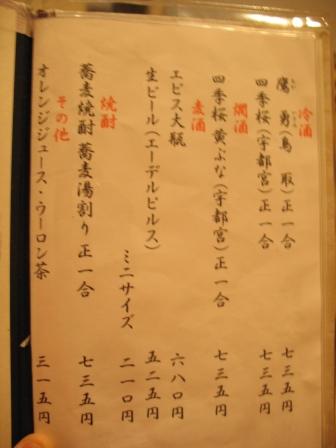 冷酒
鷹勇(鳥取)正一合 七三五円
四季桜(宇都宮)正一合 七三五円
燗酒
四季桜 黄ぶな(宇都宮)正一合 七三五円
麦酒
エビス大瓶 六八〇円
生ビール(エーデルピルス) 五二五円
ミニサイズ 二一〇円
焼酎
蕎麦焼酎 蕎麦湯割り 正一合 七三五円
その他
オレンジジュース・ウーロン茶 三一五円